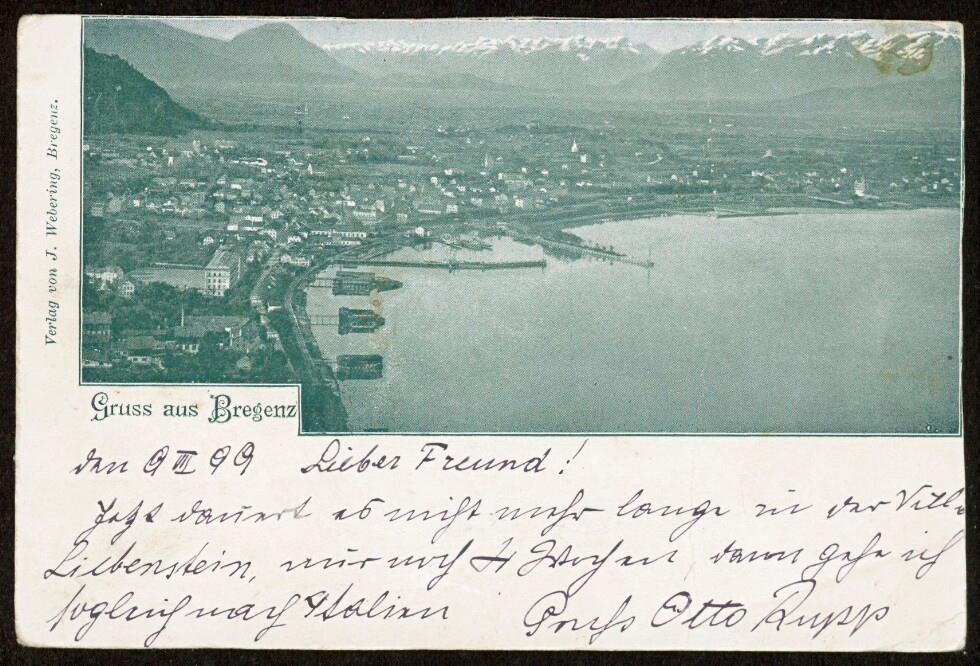 Verlag von J. Webering, Bregenz.
Gruss aus Bregenz
den 9 III 99 Lieber Freund!
Jetzt dauert es nicht mehr lange in der Vill-
Liebenstein, nur noch 4 Wochen, dann gehe ich
sogleich nach Italien Otto Rupp